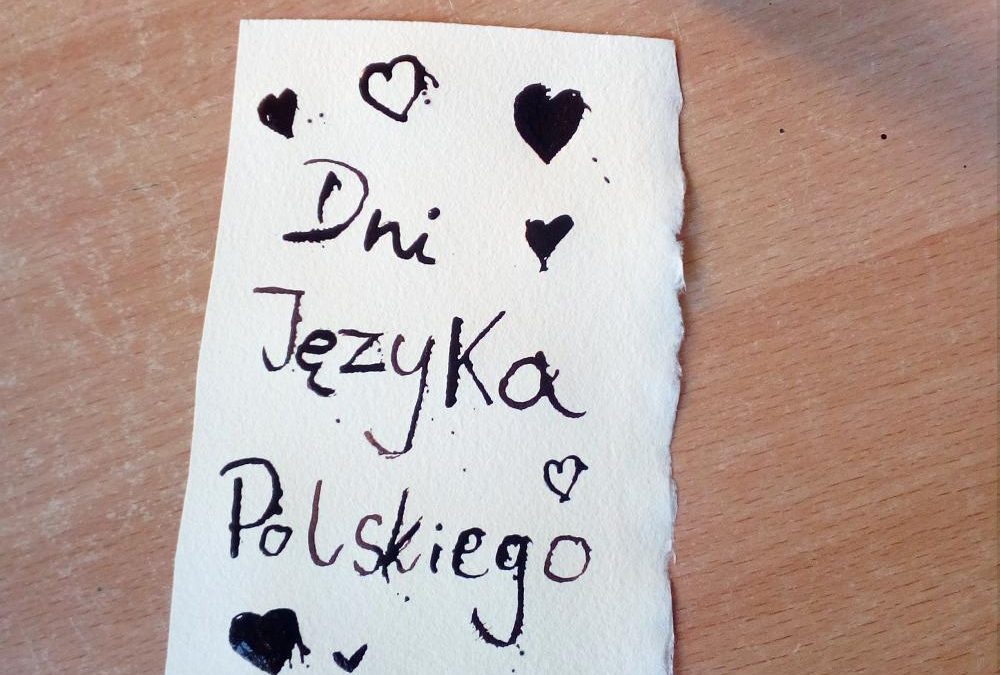 Dni
Języka
Polskiego